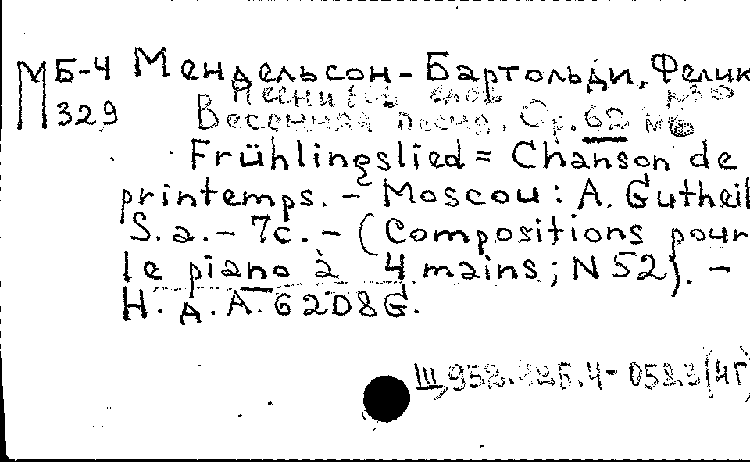 МБ-4 Мендельсон-Бартольди, Фелик
М329 Песни без слов
Весенняя песня. Op. 62 №6
Frühlingslied = Chanson de
printemps. - Moscou: A. Gutheil
S. a. - 7с. - (Compositions pour
le piano à 4 mains; N 52). -
Н. д. A. 6208 G.